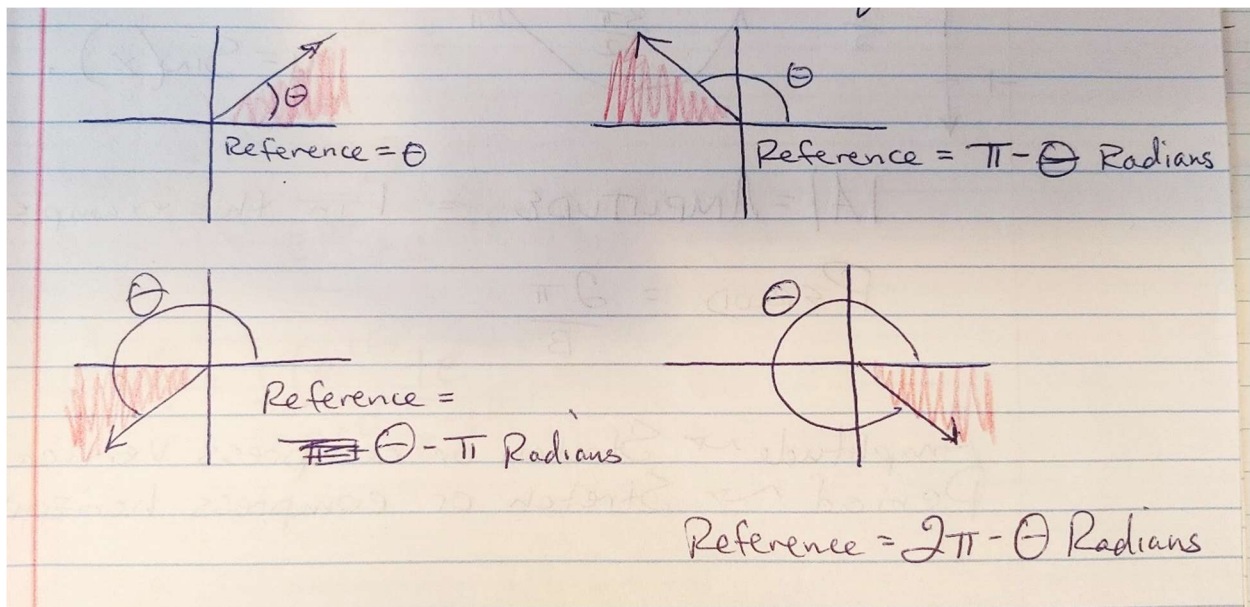 θ
Reference = θ
θ
Reference = π - θ Radians
θ
Reference =
θ - π Radians
θ
Reference = 2π - θ Radians